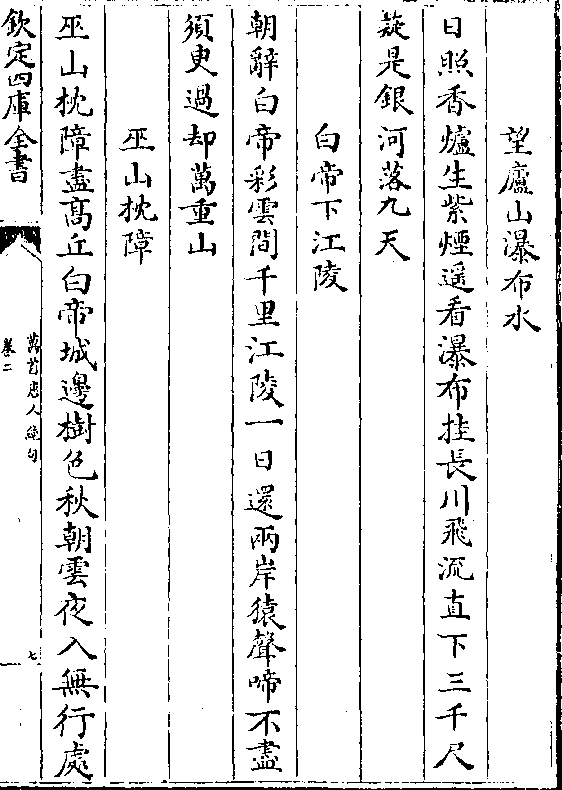 望廬山瀑布水
日照香爐生紫煙遥看瀑布挂長川飛流直下三千尺
疑是銀河落九天
白帝下江陵
朝辭白帝彩雲間千里江陵一日還兩岸猿聲啼不盡
須臾過却萬重山
巫山枕障
巫山枕障畫髙丘白帝城邊樹色秋朝雲夜入無行處
欽定四庫全書
萬首唐人絶句
卷二
七